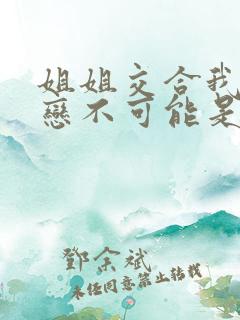 姐姐交合我
戀不可能是
鄧余斌
未经同意禁止转载